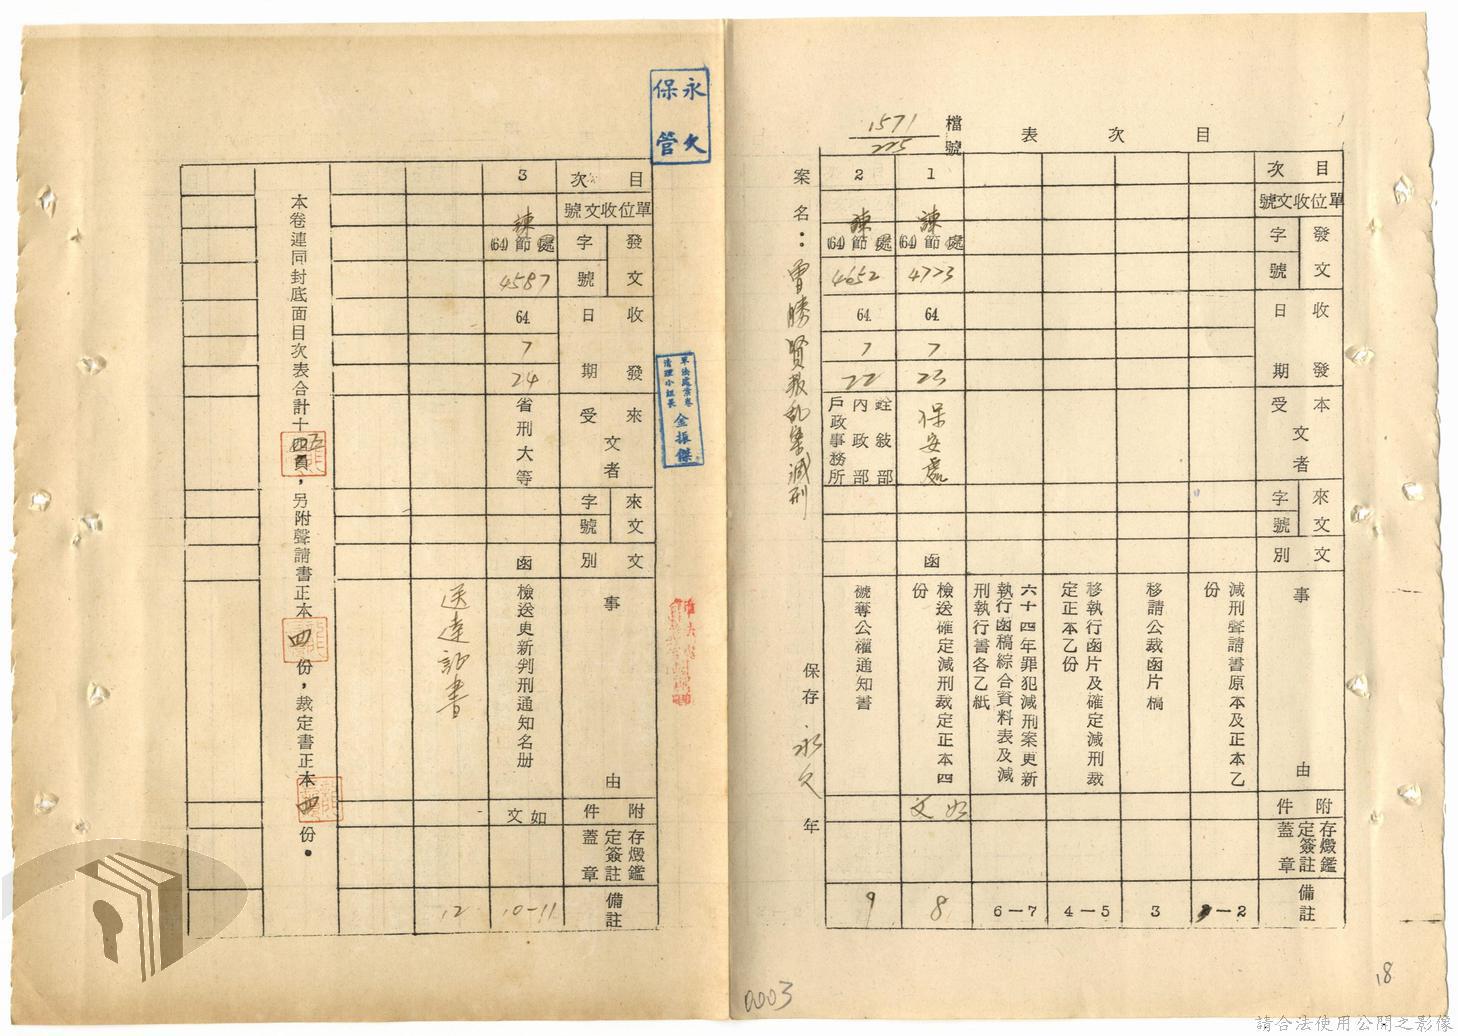 目次表
檔號
1571
225
案名：曾勝賢叛亂案減刑
保存永久年
目次
單位收文號
發文
字號
收發
日期
本文
受者
來文
字號
文別
事由
附件
存燬鑑定簽註蓋章
備註
減刑聲請書原本及正本乙份
1－2
移請公裁函片稿
3
移執行函片及確定減刑裁定正本乙份
4－5
六十四年罪犯減刑案更新執行函稿綜合資料表及減刑執行書各乙紙
6－7
1
(64)諫節處
4723
64.
7
23
保安處
函
檢送確定減刑裁定正本四份
如文
8
2
(64)諫節處
4652
64.
7
22
銓敍部
內政部
戶政事務所
褫奪公權通知書
9
永久保管
軍法處案卷
清理小組長
金振傑
目次
單位收文號
發文
字號
收發
日期
來文
受者
來文
字號
文別
事由
附件
存燬鑑定簽註蓋章
備註
3
(64)諫節處
4587
64.
7
24
省刑大等
函
檢送更新判刑通知名册
如文
10－11
送達証書
12
本卷連同封底面目次表合計十五頁，另附聲請書正本四份，裁定書正本四份。
0003
18
請合法使用公開之影像